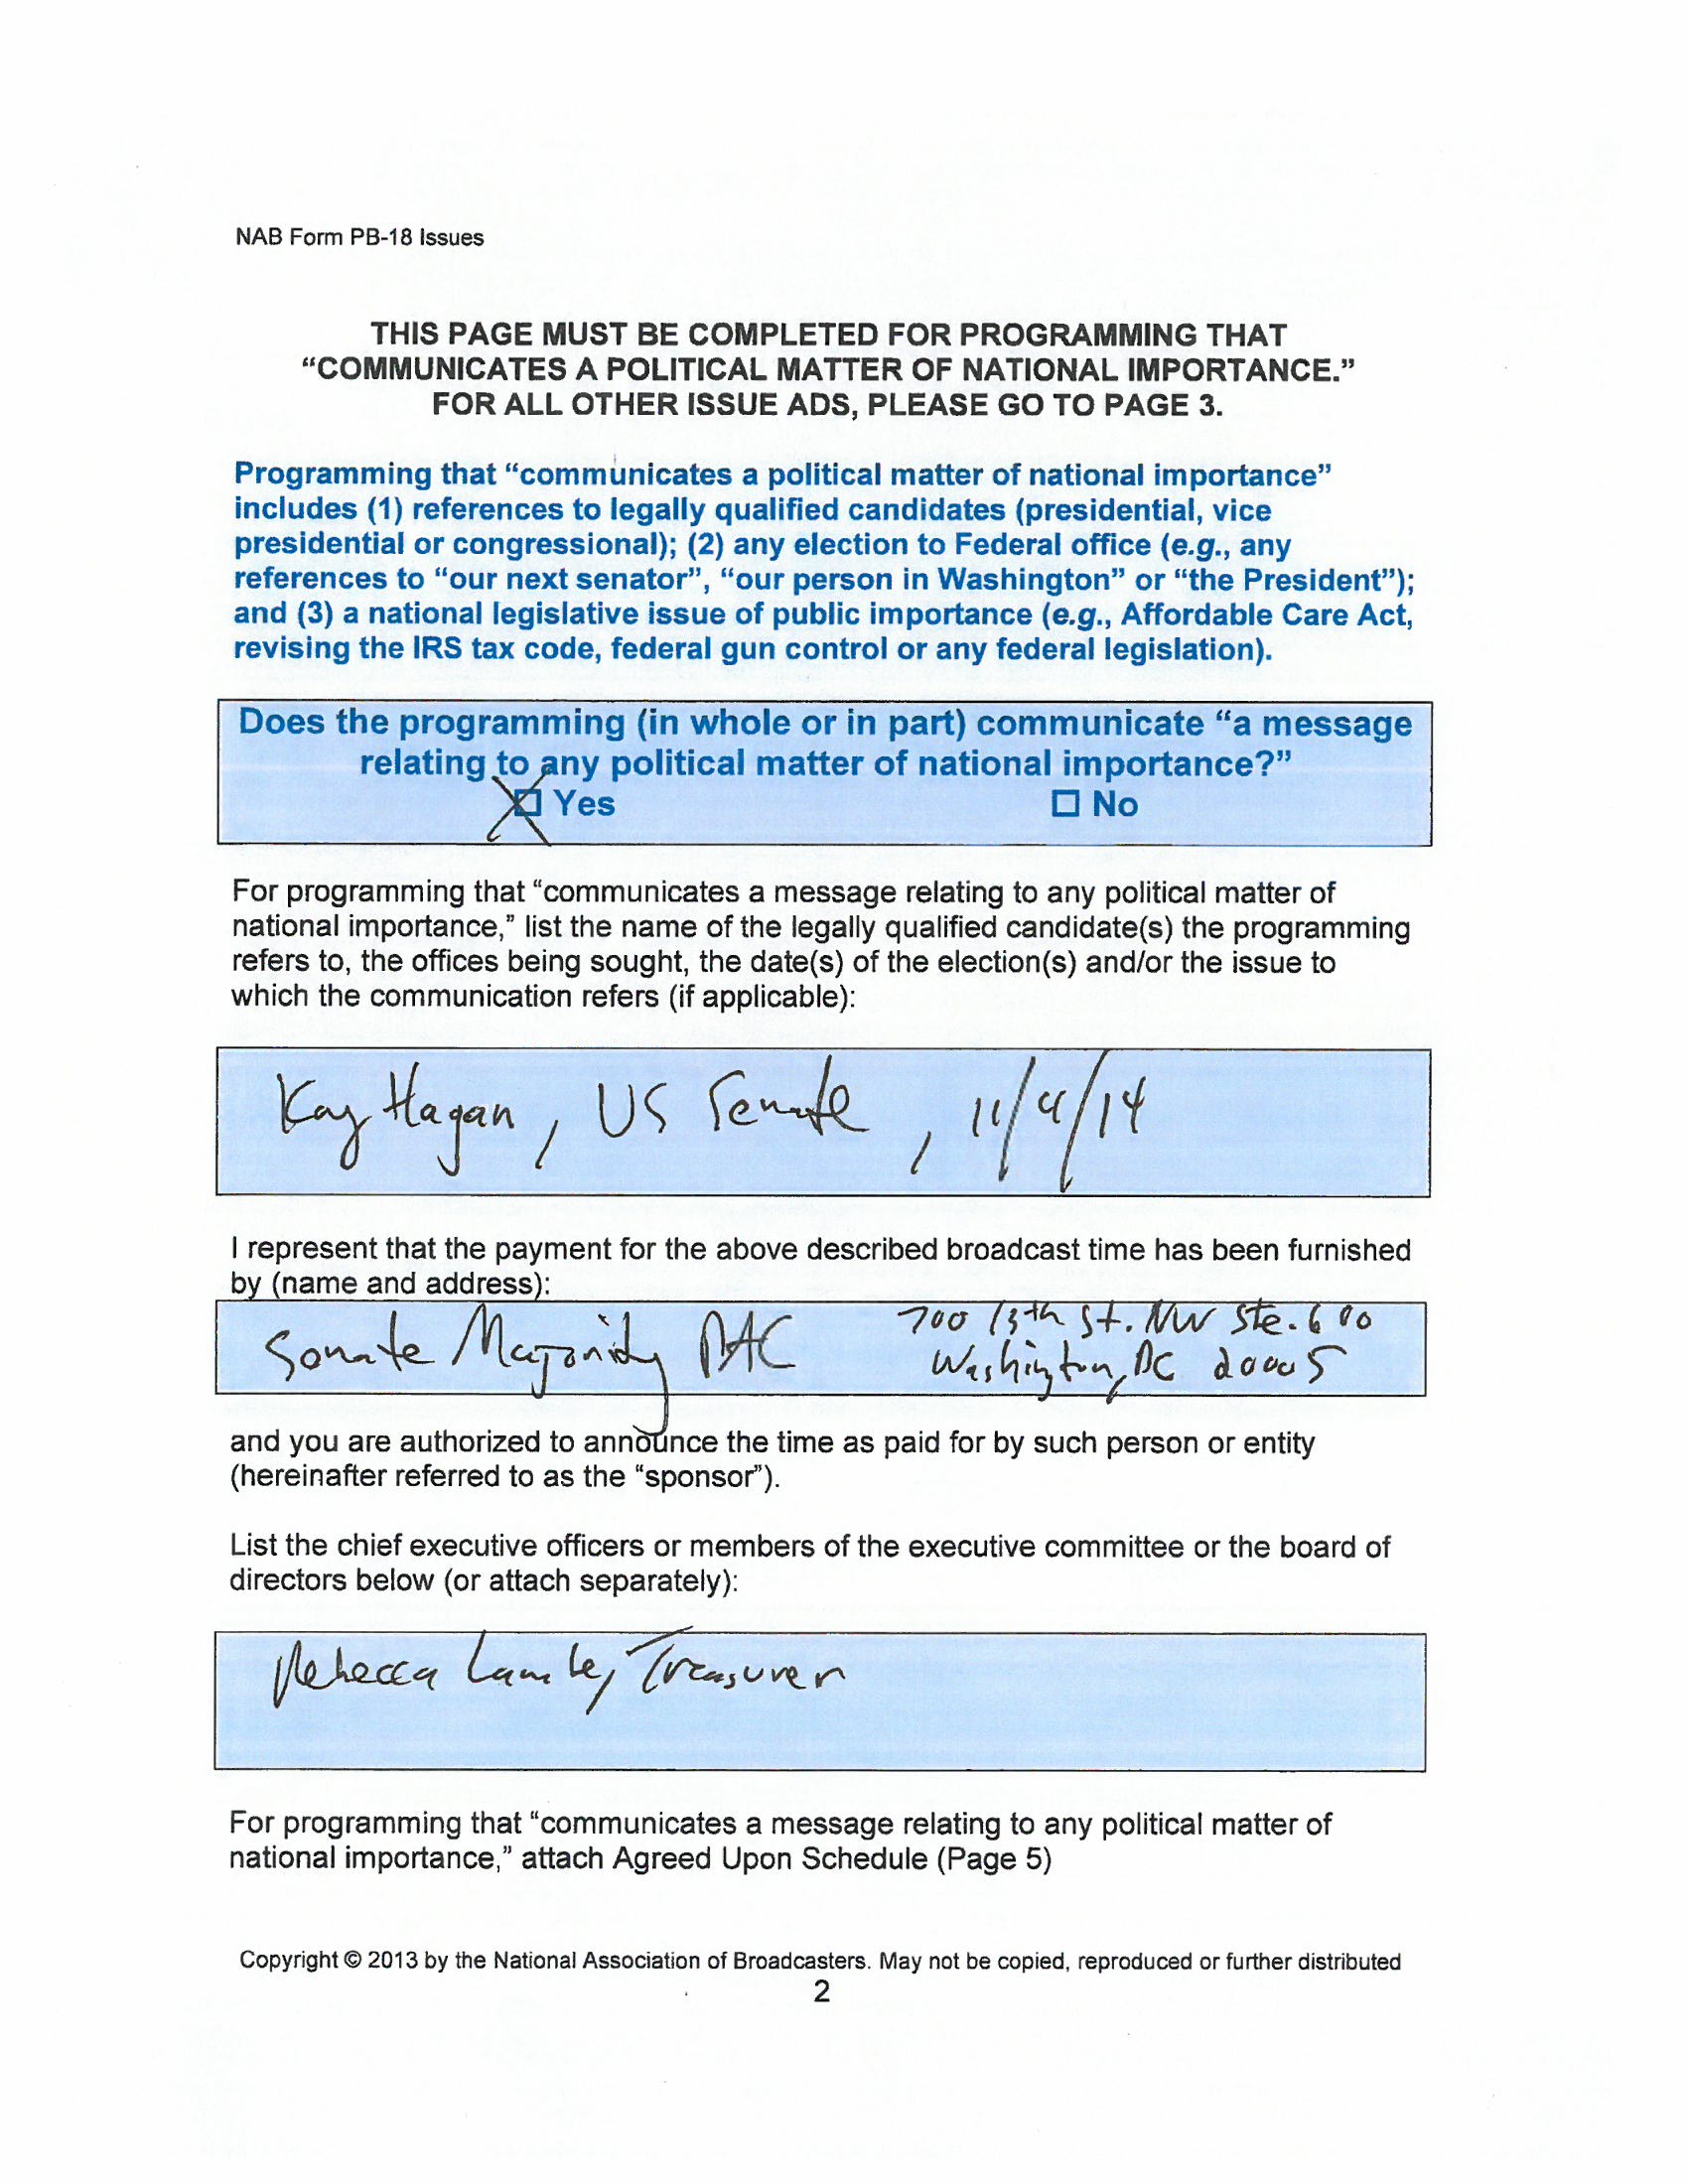 NAB Form PB-18 Issues
THIS PAGE MUST BE COMPLETED FOR PROGRAMMING THAT
“COMMUNICATES A POLITICAL MATTER OF NATIONAL IMPORTANCE.”
FOR ALL OTHER ISSUE ADS, PLEASE GO TO PAGE 3.
Programming that “communicates a political matter of national importance”
includes (1) references to legally qualified candidates (presidential, vice
presidential or congressional); (2) any election to Federal office (e.g., any
references to “our next senator”, “our person in Washington” or “the President”);
and (3) a national legislative issue of public importance (e.g., Affordable Care Act,
revising the IRS tax code, federal gun control or any federal legislation).
Does the programming (in whole or in part) communicate “a message
relating to any political matter of national importance?”
☒ Yes ☐ No
For programming that “communicates a message relating to any political matter of
national importance,” list the name of the legally qualified candidate(s) the programming
refers to, the offices being sought, the date(s) of the election(s) and/or the issue to
which the communication refers (if applicable):
Kay Hagan, US Senate, 11/4/14
I represent that the payment for the above described broadcast time has been furnished
by (name and address):
Senate Majority PAC 700 13th St. NW Ste. 600
Washington, DC 20005
and you are authorized to announce the time as paid for by such person or entity
(hereinafter referred to as the “sponsor”).
List the chief executive officers or members of the executive committee or the board of
directors below (or attach separately):
Rebecca Lambe, Treasurer
For programming that “communicates a message relating to any political matter of
national importance,” attach Agreed Upon Schedule (Page 5)
Copyright © 2013 by the National Association of Broadcasters. May not be copied, reproduced or further distributed
2